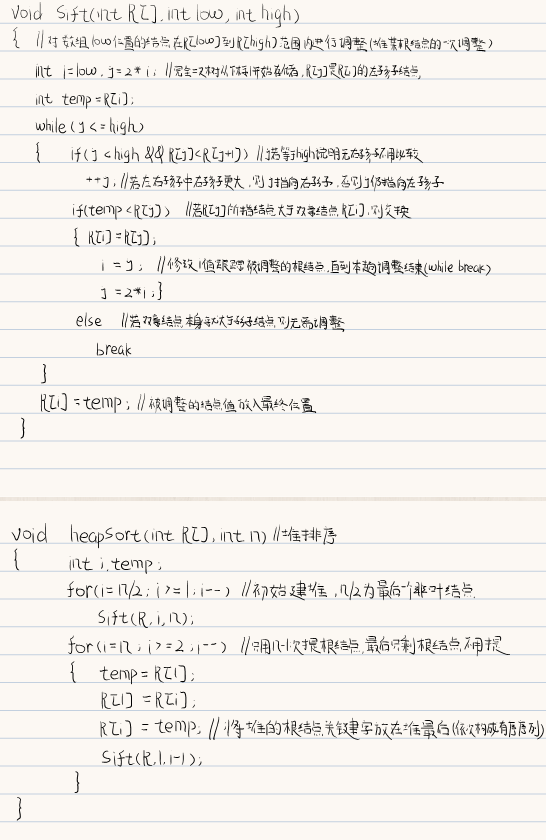 void Sift(int R[], int low, int high)
{ //对数组low位置的结点在R[low]到R[high]范围内进行调整(堆某根结点的一次调整)
int i=low, j=2*i; //完全二叉树从下标1开始存储,R[j]是R[i]的左孩子结点
int temp=R[i];
while(j<=high)
{ if(j<high && R[j]<R[j+1]) //若等于high说明无右孩子不用比较
++j; //若左右孩子中右孩子更大,则j指向右孩子,否则j仍指向左孩子
if(temp<R[j]) //若R[j]所指结点大于双亲结点R[i],则交换
{ R[i]=R[j];
i = j; //修改i值跟踪被调整的根结点,直到本趟调整结束(while break)
j = 2*i;}
else //若双亲结点本身就大于孩子结点,则无需调整
break
}
R[i]=temp; //被调整的结点值放入最终位置
}
void heapSort(int R[], int n) //堆排序
{ int i,temp;
for(i=n/2; i>=1; i--) //初始建堆,n/2为最后一个非叶结点
Sift(R,i,n);
for(i=n; i>=2; i--) //只用n-1次提根结点,最后只剩根结点不用提
{ temp=R[1];
R[1]=R[i];
R[i] = temp; //将堆的根结点关键字放在堆最后(依次构成有序序列)
Sift(R,1,i-1);
}
}